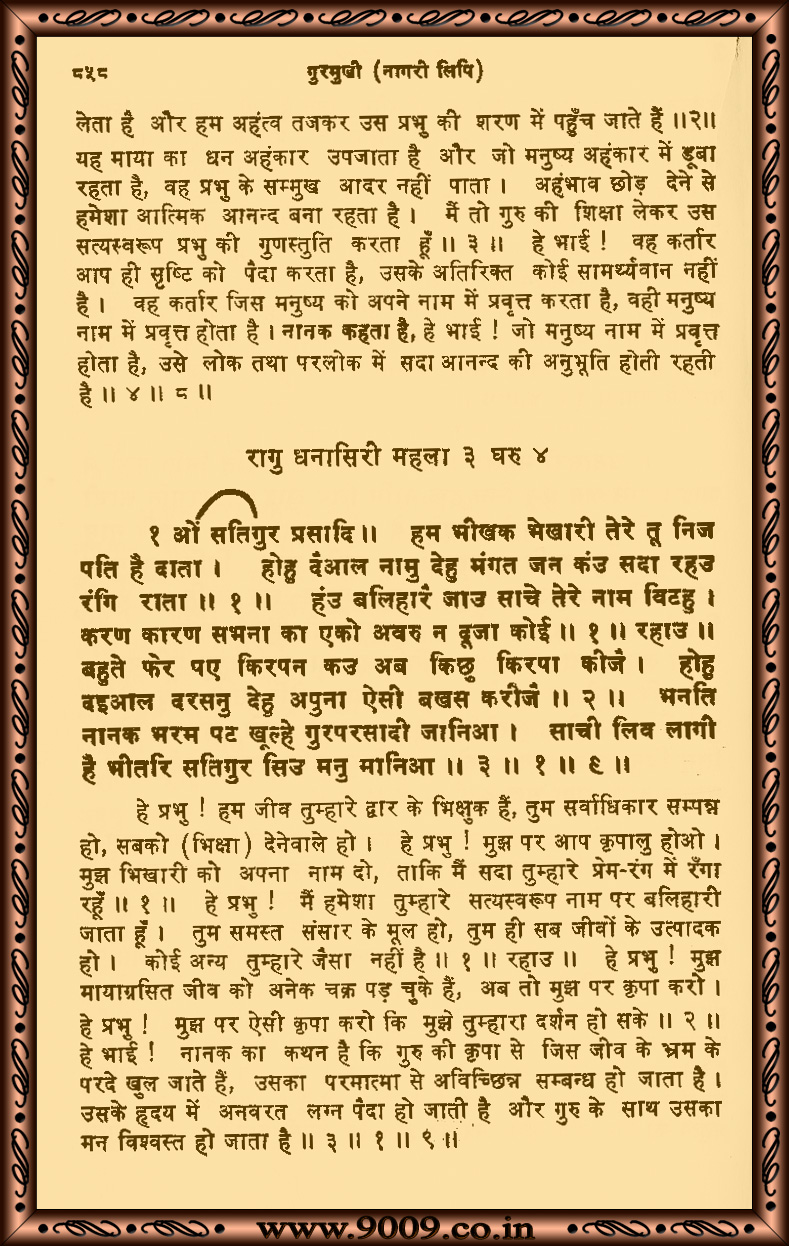 ८५८ गुरमुखी (नागरी लिपि)
लेता है और हम अहंत्व तजकर उस प्रभु की शरण में पहुँच जाते हैं ॥२॥
यह माया का धन अहंकार उपजाता है और जो मनुष्य अहंकार में डूबा
रहता है, वह प्रभु के सम्मुख आदर नहीं पाता । अहंभाव छोड़ देने से
हमेशा आत्मिक आनन्द बना रहता है । मैं तो गुरु की शिक्षा लेकर उस
सत्यस्वरूप प्रभु की गुणस्तुति करता हूँ ॥ ३ ॥ हे भाई ! वह कर्तार
आप ही सृष्टि को पैदा करता है, उसके अतिरिक्त कोई सामर्थ्यवान नहीं
है । वह कर्तार जिस मनुष्य को अपने नाम में प्रवृत्त करता है, वही मनुष्य
नाम में प्रवृत्त होता है । नानक कहता है, हे भाई ! जो मनुष्य नाम में प्रवृत्त
होता है, उसे लोक तथा परलोक में सदा आनन्द की अनुभूति होती रहती
है ॥ ४ ॥ ८ ॥
रागु धनासिरी महला ३ घरु ४
१ ओं सतिगुर प्रसादि ॥ हम भीखक भेखारी तेरे तू निज
पति है दाता । होहु दैआल नामु देहु मंगत जन कंउ सदा रहउ
रंगि राता ॥ १ ॥ हंउ बलिहारै जाउ साचे तेरे नाम विटहु ।
करण कारण सभना का एको अवरु न दूजा कोई ॥ १ ॥ रहाउ ॥
बहुते फेर पए किरपन कउ अब किछु किरपा कीजै । होहु
दइआल दरसनु देहु अपुना ऐसी बखस करीजै ॥ २ ॥ भनति
नानक भरम पट खूल्हे गुरपरसादी जानिआ । साची लिव लागी
है भीतरि सतिगुर सिउ मनु मानिआ ॥ ३ ॥ १ ॥ ९ ॥
हे प्रभु ! हम जीव तुम्हारे द्वार के भिक्षुक हैं, तुम सर्वाधिकार सम्पन्न
हो, सबको (भिक्षा) देनेवाले हो । हे प्रभु ! मुझ पर आप कृपालु होओ ।
मुझ भिखारी को अपना नाम दो, ताकि मैं सदा तुम्हारे प्रेम-रंग में रँगा
रहूँ ॥ १ ॥ हे प्रभु ! मैं हमेशा तुम्हारे सत्यस्वरूप नाम पर बलिहारी
जाता हूँ । तुम समस्त संसार के मूल हो, तुम ही सब जीवों के उत्पादक
हो । कोई अन्य तुम्हारे जैसा नहीं है ॥ १ ॥ रहाउ ॥ हे प्रभु ! मुझ
मायाग्रसित जीव को अनेक चक्र पड़ चुके हैं, अब तो मुझ पर कृपा करो ।
हे प्रभु ! मुझ पर ऐसी कृपा करो कि मुझे तुम्हारा दर्शन हो सके ॥ २ ॥
हे भाई ! नानक का कथन है कि गुरु की कृपा से जिस जीव के भ्रम के
परदे खुल जाते हैं, उसका परमात्मा से अविच्छिन्न सम्बन्ध हो जाता है ।
उसके हृदय में अनवरत लग्न पैदा हो जाती है और गुरु के साथ उसका
मन विश्वस्त हो जाता है ॥ ३ ॥ १ ॥ ९ ॥
www.9009.co.in